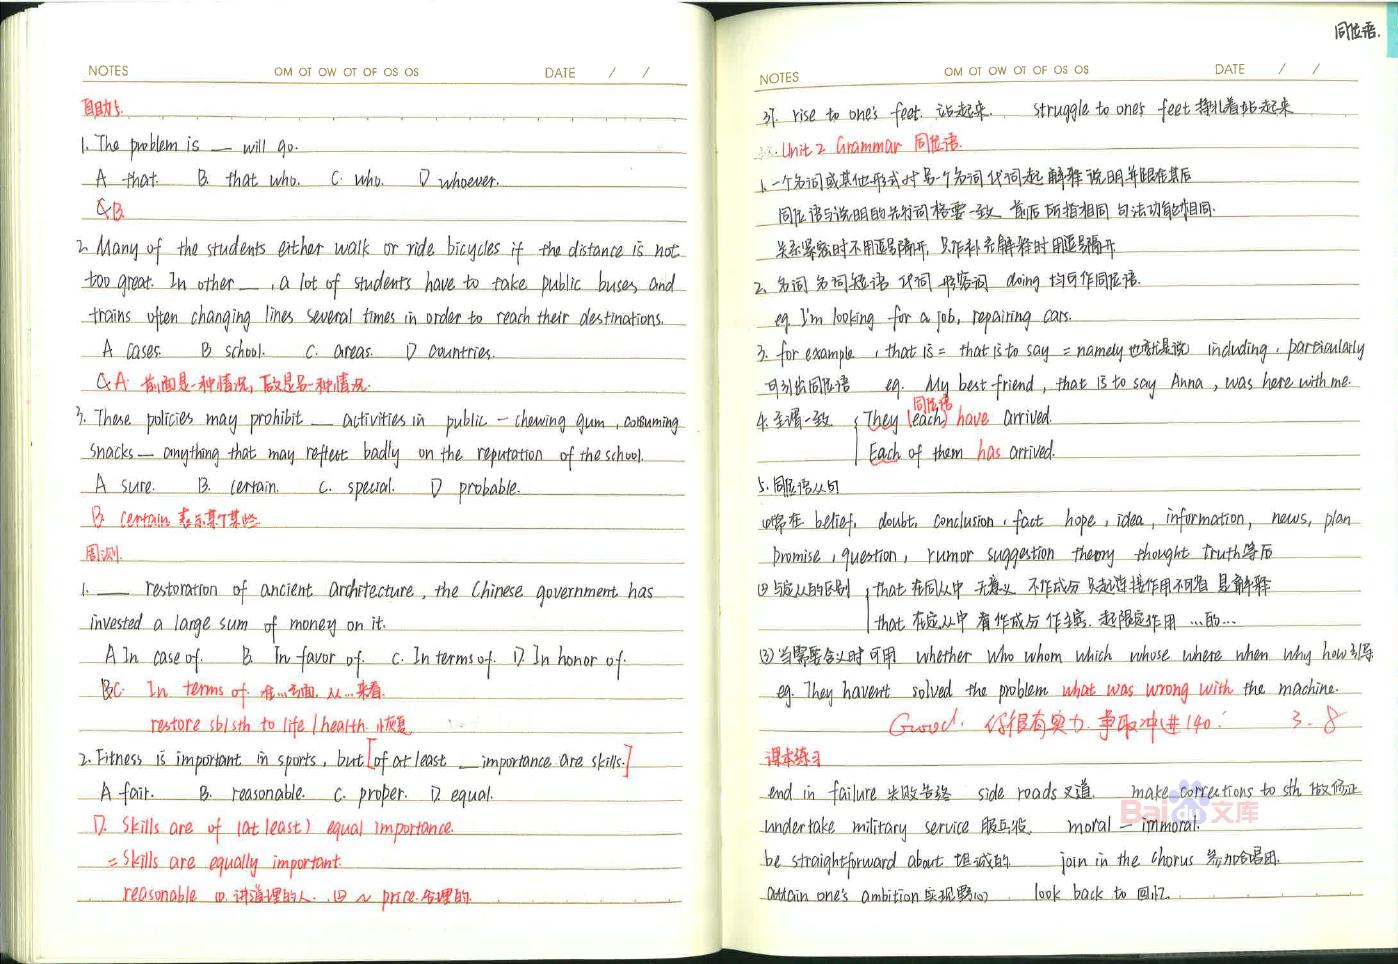 NOTES OM OT OW OT OF OS OS DATE / /
自助5.
1. The problem is __ will go.
A that. B. that who. C. who. D whoever.
C B.
2. Many of the students either walk or ride bicycles if the distance is not
too great. In other __, a lot of students have to take public buses and
trains often changing lines several times in order to reach their destinations.
A cases. B school. C. areas. D countries.
C A. 前面是一种情况, 下文是另一种情况.
3. These policies may prohibit __ activities in public — chewing gum, consuming
snacks — anything that may reflect badly on the reputation of the school.
A sure. B. certain. C. special. D probable.
B. certain 表示某个某些
周测.
1. ___ restoration of ancient architecture, the Chinese government has
invested a large sum of money on it.
A In case of. B. In favor of. C. In terms of. D. In honor of.
B C. In terms of. 在…方面, 从…来看.
restore sb/sth to life/health. 恢复
2. Fitness is important in sports, but [of at least __ importance are skills.]
A fair. B. reasonable. C. proper. D. equal.
D. Skills are of (at least) equal importance.
= Skills are equally important.
reasonable ①. 讲道理的人. ② ~ price. 合理的.
同位语.
NOTES OM OT OW OT OF OS OS DATE / /
37. rise to one's feet. 站起来. struggle to one's feet 挣扎着站起来
Unit 2 Grammar 同位语.
1. 一个名词或其他形式对另一个名词代词起解释说明并跟在其后
同位语与说明的先行词格要一致 前后所指相同 句法功能相同.
关系紧密时不用逗号隔开, 只作补充解释时用逗号隔开
2. 名词 名词短语 代词 形容词 doing 均可作同位语.
eg. I'm looking for a job, repairing cars.
3. for example, that is = that is to say = namely 也就是说 including, particularly
可引出同位语 eg. My best friend, that is to say Anna, was here with me.
同位语
4. 主谓一致 { They (each) have arrived.
Each of them has arrived.
5. 同位语从句
①常在 belief, doubt, conclusion, fact hope, idea, information, news, plan
promise, question, rumor suggestion theory thought truth等后
②与定从的区别 { that 在同从中 无意义 不作成分 只起连接作用不可省 是解释
that 在定从中 有作成分 作主宾. 起限定作用 …的…
③当需要含义时可用 whether who whom which whose where when why how引导.
eg. They haven't solved the problem what was wrong with the machine.
Good. 你很有实力. 争取冲进140! 3.8
课本练习
end in failure 失败告终 side roads 叉道. make corrections to sth 做修正
undertake military service 服兵役. moral — immoral.
be straightforward about 坦诚的 join in the chorus 参加合唱团.
attain one's ambition 实现野心 look back to 回忆.
Baidu文库